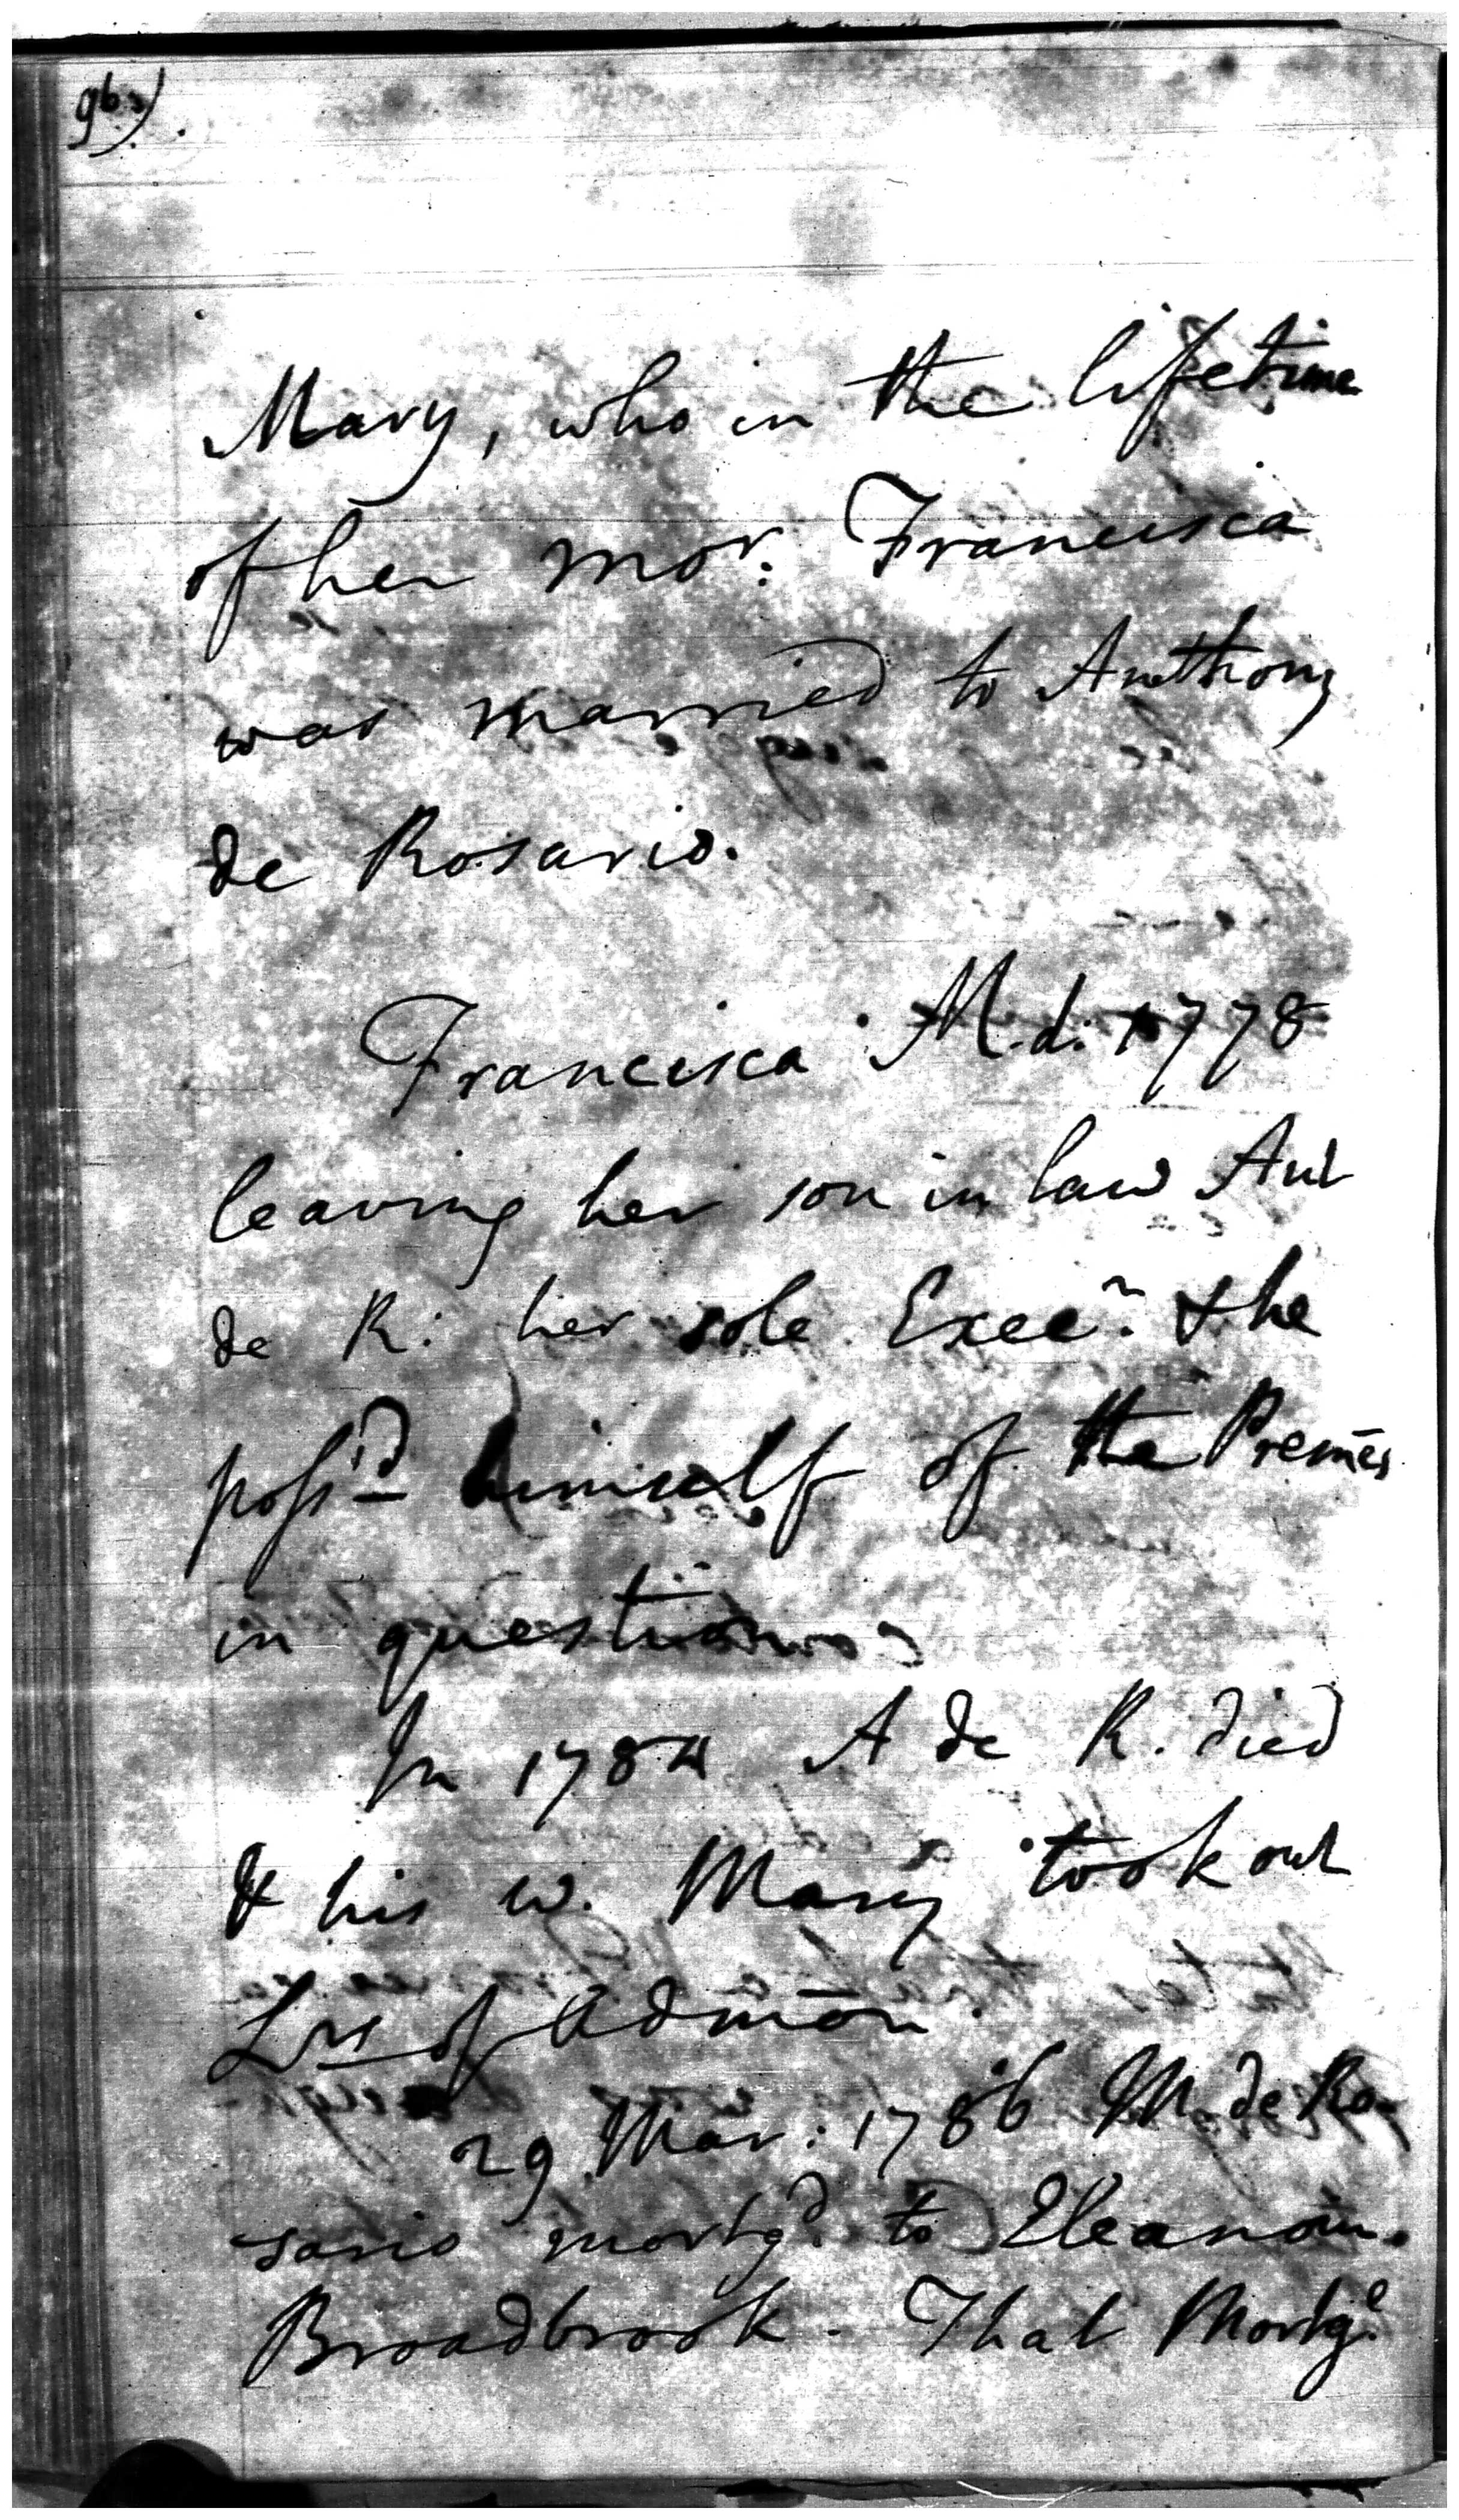 Mary, who in the lifetime
of her mor: Francisca
was married to Anthony
de Rosario.
Francisca M. d. 1778
leaving her son in law Ant
de R: her sole Execr. & he
poss'd himself of the Premēs
in question.
In 1784 A de R. died
& his w. Mary took out
Lrs of Admōn
29 Mar: 1786 M. de Ro-
sario mortgd. to Eleanour
Broadbrook - That Mortge.